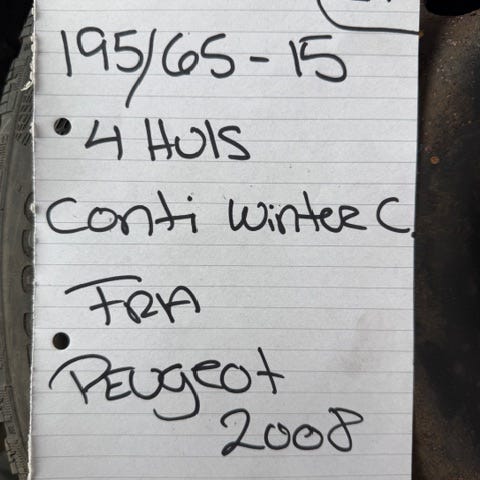 195/65-15
4 Huls
Conti Winter C.
FRA
Peugeot
2008